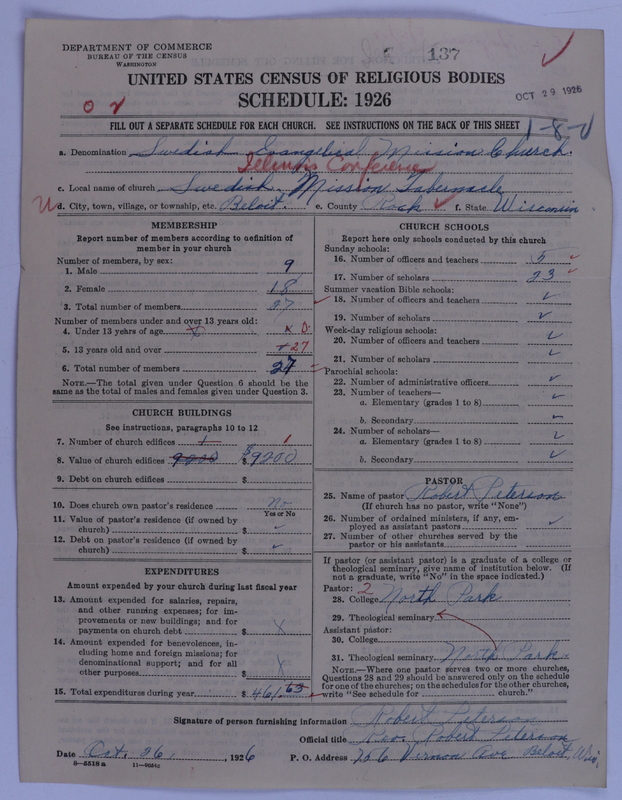 DEPARTMENT OF COMMERCE
BUREAU OF THE CENSUS
WASHINGTON
137
UNITED STATES CENSUS OF RELIGIOUS BODIES
SCHEDULE: 1926
OCT 29 1926
FILL OUT A SEPARATE SCHEDULE FOR EACH CHURCH. SEE INSTRUCTIONS ON THE BACK OF THIS SHEET
1-8-
a. Denomination Swedish Evangelical Mission Church.
Illinois Conference
c. Local name of church Swedish. Mission Tabernacle
d. City, town, village, or township, etc. Beloit. e. County Rock f. State Wisconsin
MEMBERSHIP
Report number of members according to definition of member in your church
Number of members, by sex:
1. Male 9
2. Female 18
3. Total number of members 27
Number of members under and over 13 years old:
4. Under 13 years of age x 0.
5. 13 years old and over 27
6. Total number of members 27
NOTE.—The total given under Question 6 should be the
same as the total of males and females given under Question 3.
CHURCH BUILDINGS
See instructions, paragraphs 10 to 12
7. Number of church edifices 1 1
8. Value of church edifices 9200 $9200
9. Debt on church edifices $
10. Does church own pastor's residence No
Yes or No
11. Value of pastor's residence (if owned by
church) $
12. Debt on pastor's residence (if owned by
church) $
EXPENDITURES
Amount expended by your church during last fiscal year
13. Amount expended for salaries, repairs,
and other running expenses; for im-
provements or new buildings; and for
payments on church debt $ x
14. Amount expended for benevolences, in-
cluding home and foreign missions; for
denominational support; and for all
other purposes $ x
15. Total expenditures during year $ 461.63
CHURCH SCHOOLS
Report here only schools conducted by this church
Sunday schools:
16. Number of officers and teachers 5
17. Number of scholars 23
Summer vacation Bible schools:
18. Number of officers and teachers
19. Number of scholars
Week-day religious schools:
20. Number of officers and teachers
21. Number of scholars
Parochial schools:
22. Number of administrative officers
23. Number of teachers—
a. Elementary (grades 1 to 8)
b. Secondary
24. Number of scholars—
a. Elementary (grades 1 to 8)
b. Secondary
PASTOR
25. Name of pastor Robert Peterson
(If church has no pastor, write "None")
26. Number of ordained ministers, if any, em-
ployed as assistant pastors
27. Number of other churches served by the
pastor or his assistants
If pastor (or assistant pastor) is a graduate of a college or
theological seminary, give name of institution below. (If
not a graduate, write "No" in the space indicated.)
Pastor: 2
28. College North Park
29. Theological seminary
Assistant pastor:
30. College
31. Theological seminary North Park.
NOTE.—Where one pastor serves two or more churches,
Questions 28 and 29 should be answered only on the schedule
for one of the churches; on the schedules for the other churches,
write "See schedule for church."
Signature of person furnishing information Robert Peterson
Official title Rev. Robert Peterson
Date Oct. 26, 1926 P. O. Address 756 Vernon Ave Beloit, Wis.
8-5518a 11-9684c